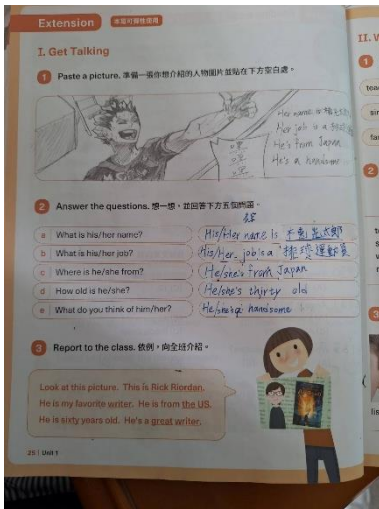 Extension 本頁可彈性使用
I. Get Talking
1 Paste a picture. 準備一張你想介紹的人物圖片並貼在下方空白處。
Her name is
Her job is a
He's from Japan
He's a handsome
嘿
嘿
嘿
2 Answer the questions. 想一想,並回答下方五個問題。
a What is his/her name? His/Her name is 木兔光太郎
b What is his/her job? His/Her job is a 排球運動員
c Where is he/she from? He/she's from Japan
d How old is he/she? He/she's thirty old
e What do you think of him/her? He/she's a handsome
3 Report to the class. 依例,向全班介紹。
Look at this picture. This is Rick Riordan.
He is my favorite writer. He is from the US.
He is sixty years old. He's a great writer.
25 | Unit 1
II. W
1
2
3